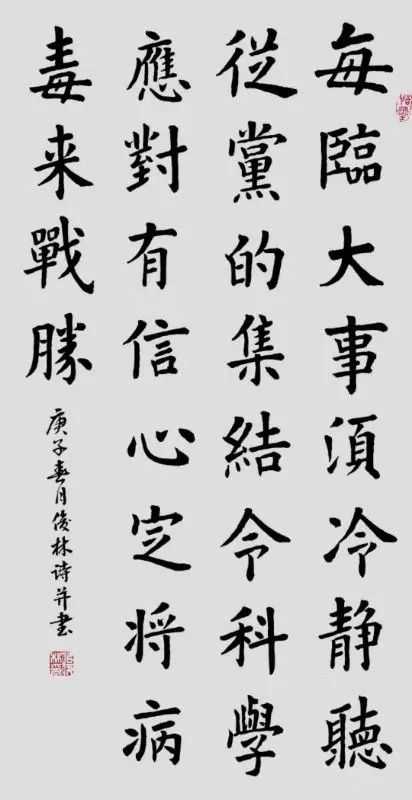 每臨大事須冷静聽
從黨的集結令科學
應對有信心定将病
毒来戰勝
庚子春月俊林诗并書